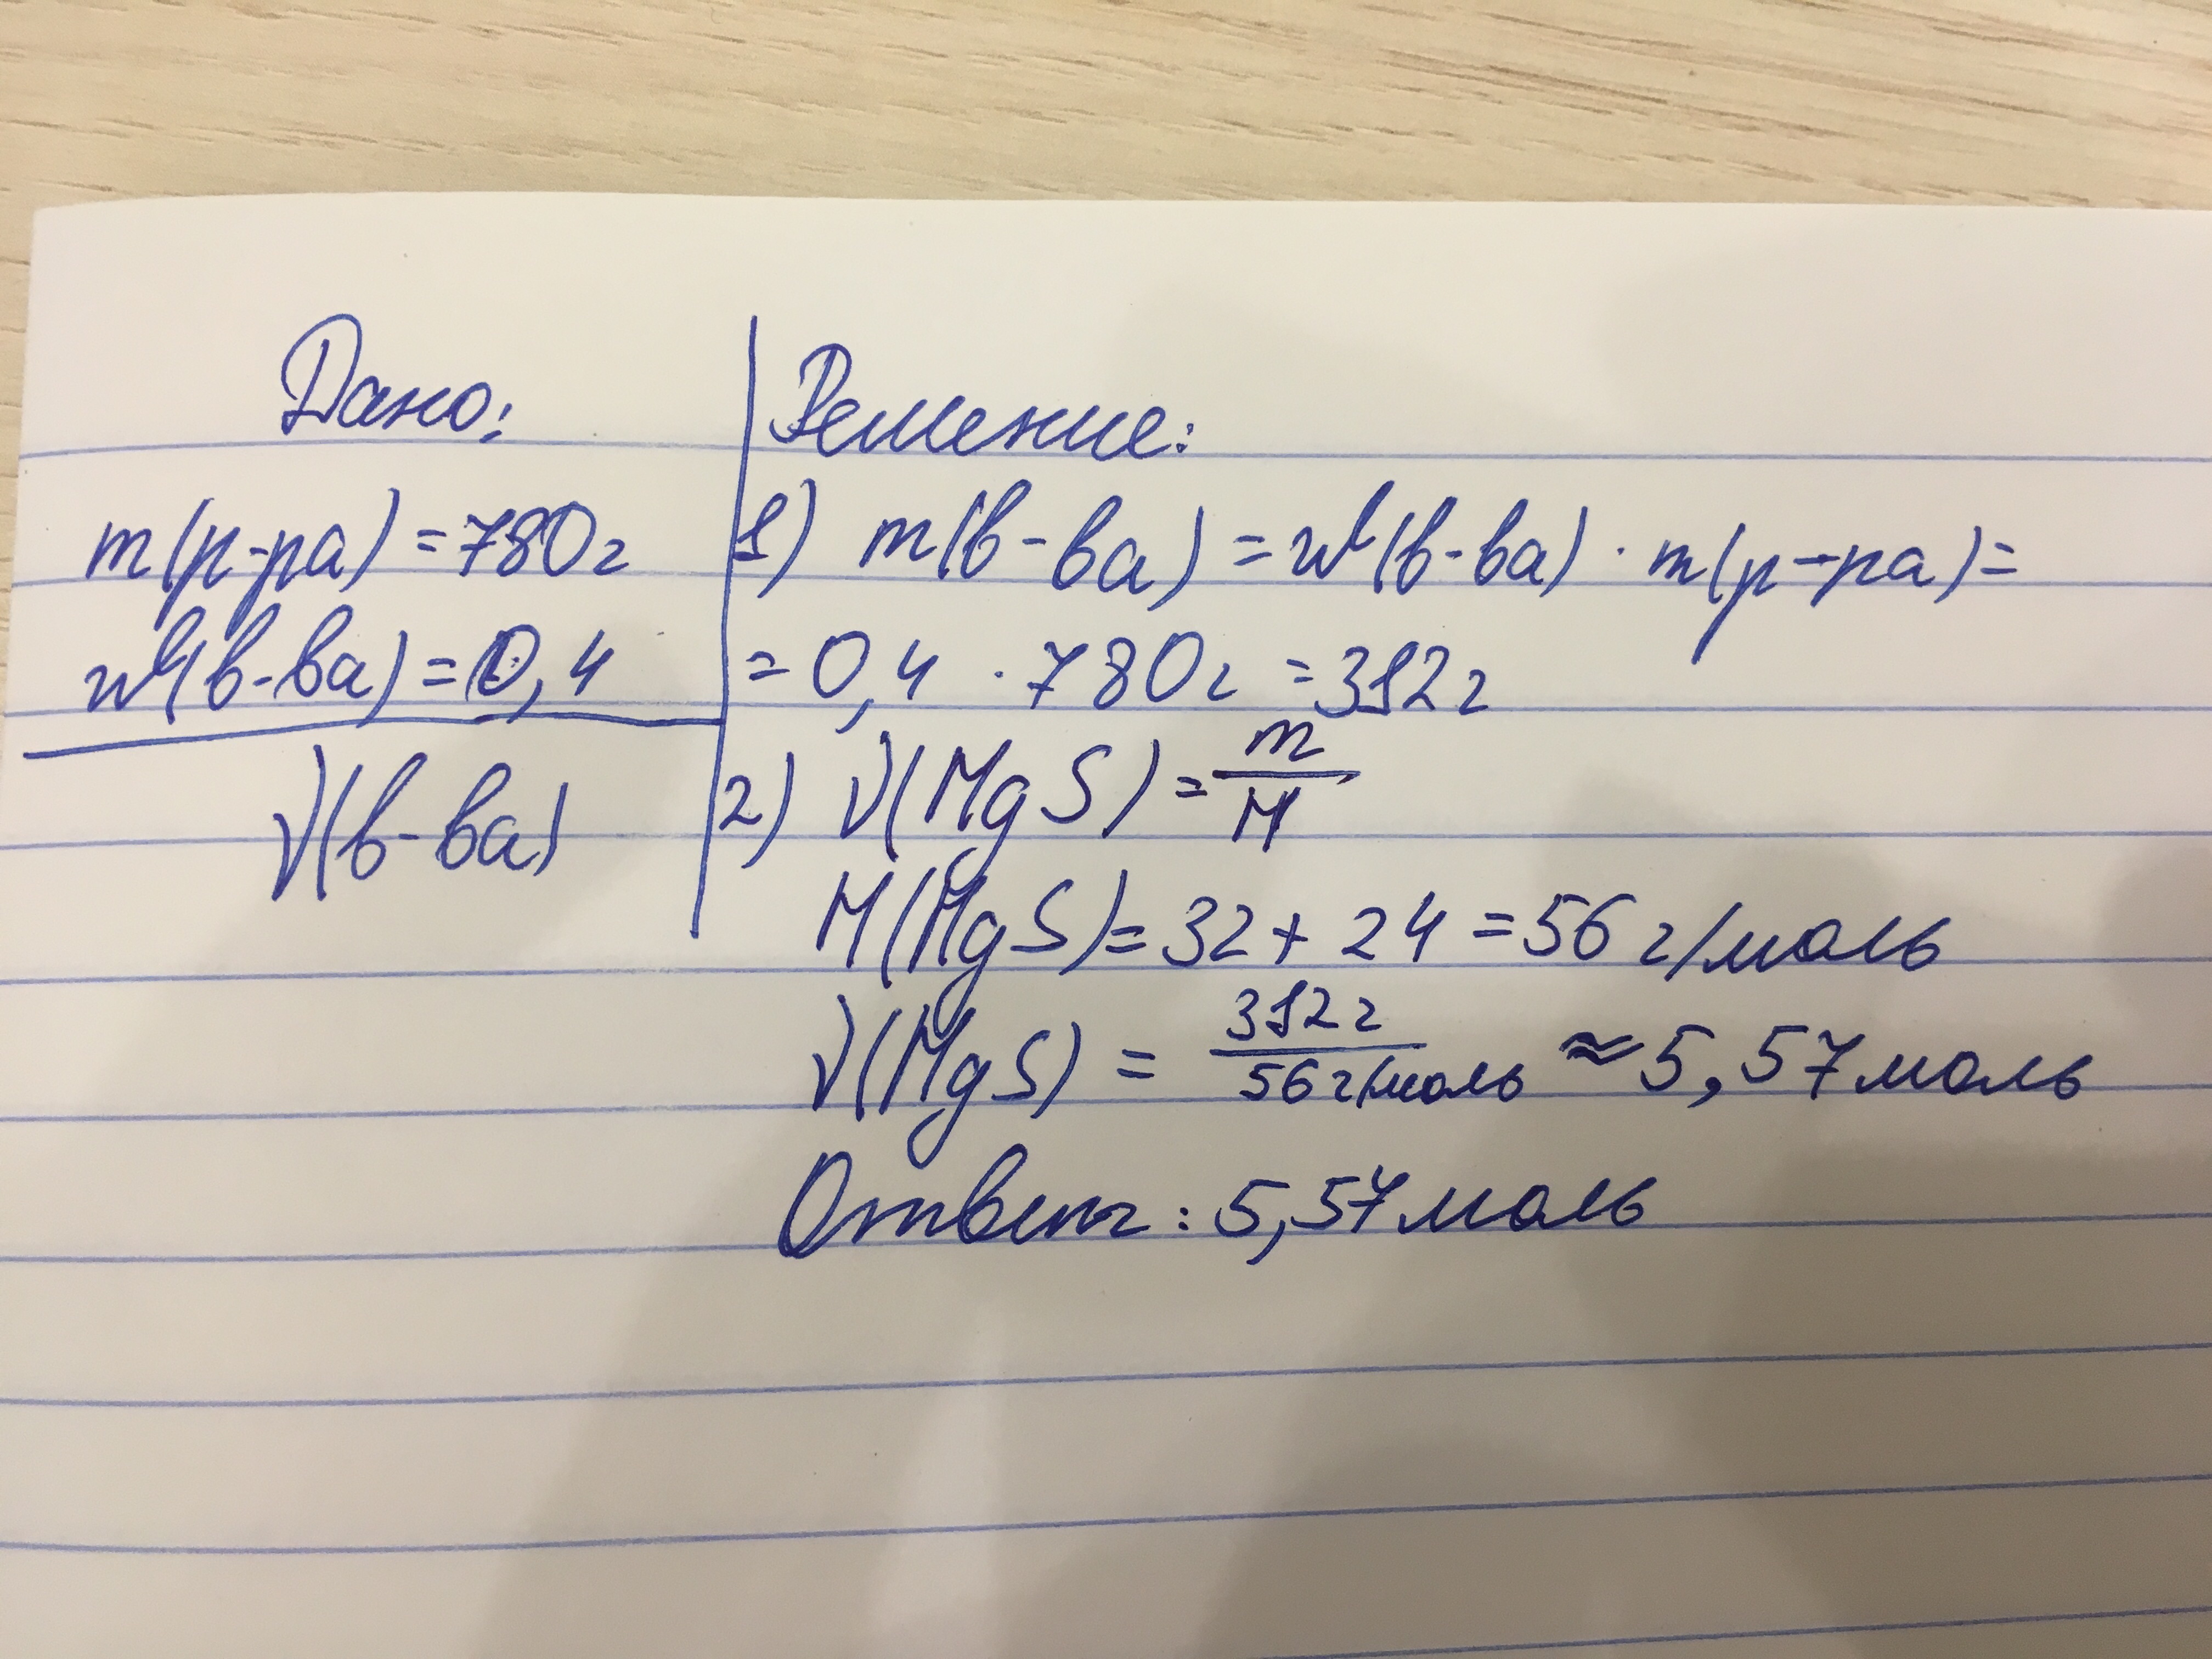 Дано:
m(р-ра) = 780 г
w(в-ва) = 0,4
ν(в-ва)
Решение:
1) m(в-ва) = w(в-ва) · m(р-ра) =
= 0,4 · 780 г = 312 г
2) ν(MgS) = m/M
M(MgS) = 32 + 24 = 56 г/моль
ν(MgS) = 312 г/56 г/моль ≈ 5,57 моль
Ответ: 5,57 моль